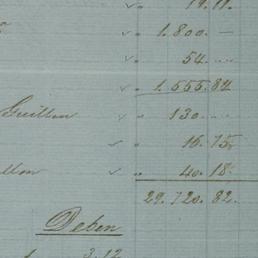 ✓ " 19.11.
✓ " 1.800. —
✓ " 54. ..
✓ " 1.555.82
Guillen ✓ " 130. ..
✓ " 16.75
✓ " 40.18
29.720.82.
Deben
3.12